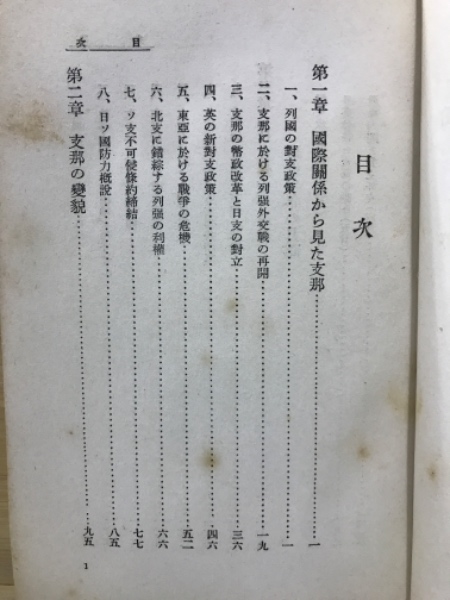 目次
目次
第一章 國際關係から見た支那……一
一、列國の對支政策……一
二、支那に於ける列强外交戰の再開……一九
三、支那の幣政改革と日支の對立……三六
四、英の新對支政策……四六
五、東亞に於ける戰爭の危機……五二
六、北支に錯綜する列强の利權……六六
七、ソ支不可侵條約締結……七七
八、日ソ國防力槪說……八五
第二章 支那の變貌……九五
1